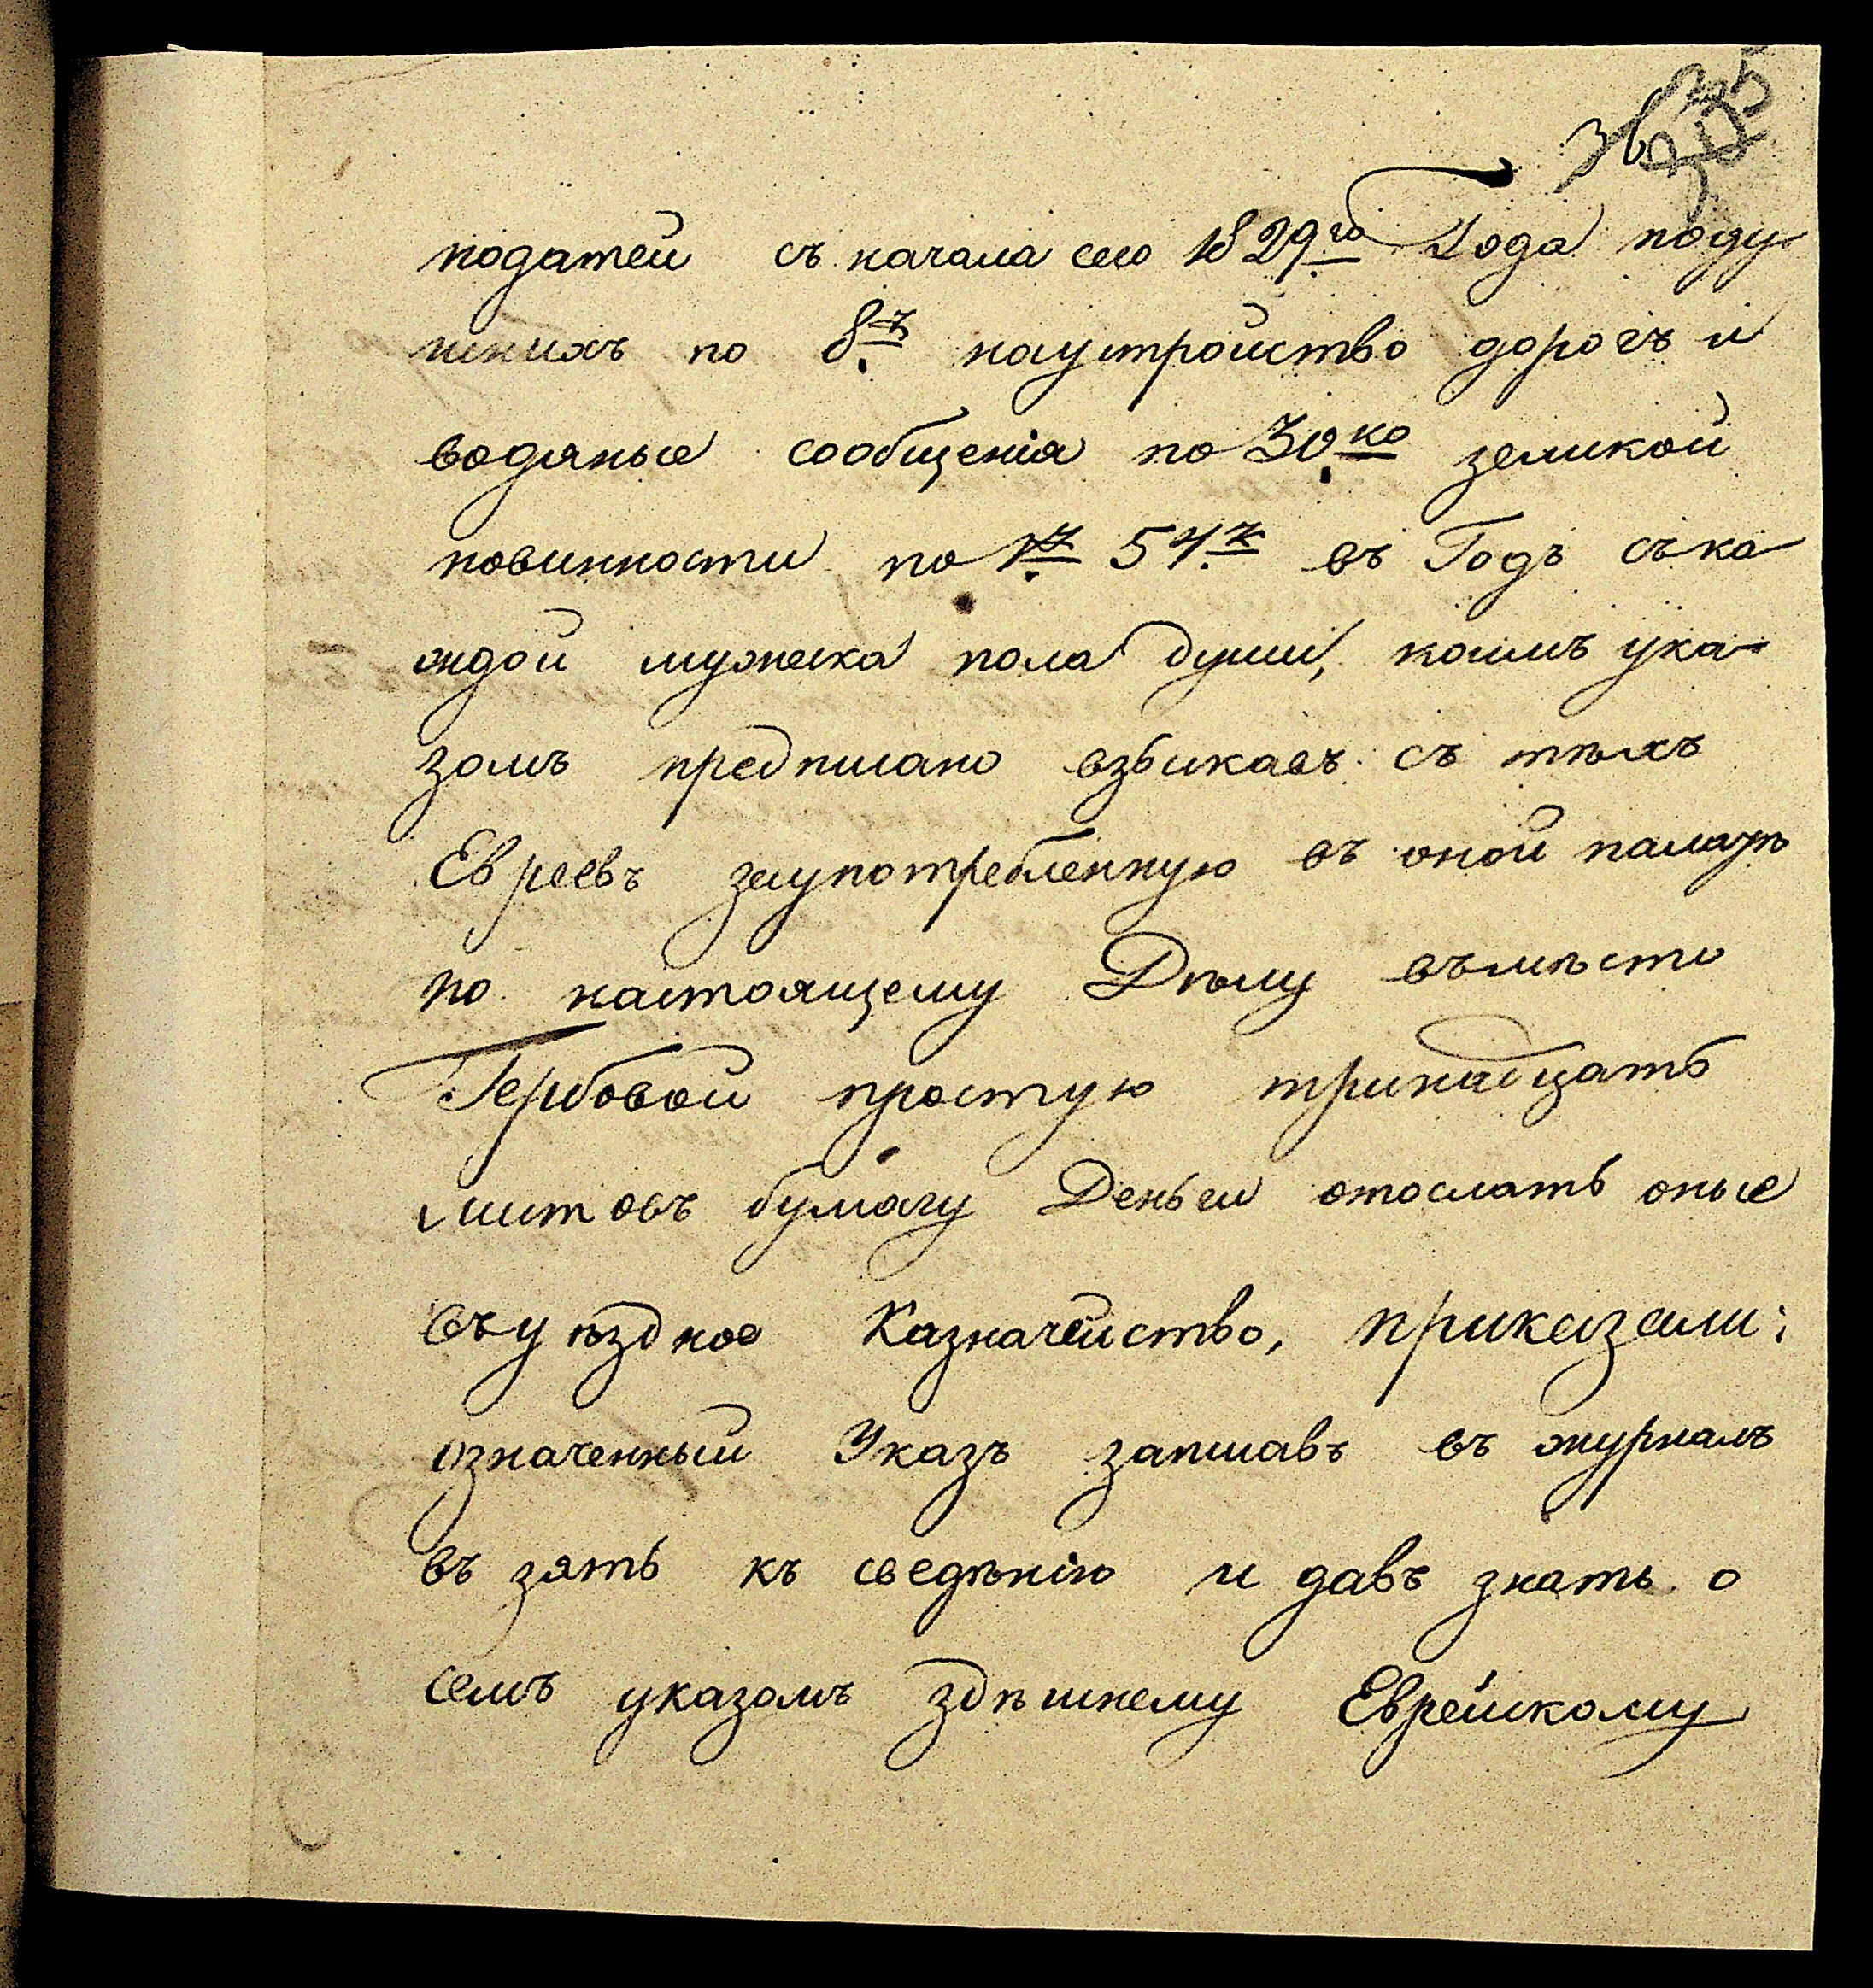 податей съ начала сего 1829го Года поду
шныхъ по 8.р наустройство дорогъ и
водяные сообщенія по 30.ко земской
повинности по 1.р 54.к въ Годъ съка
ждой мужеска пола души, коимъ ука
зомъ предписано взыскавъ съ тѣхъ
Евреевъ заупотребленную въ оной палатѣ
по настоящему Дѣлу въмѣсто
Гербовой простую тринадцать
листовъ бумагу Деньги отослать оные
въуѣздное Казначейство, приказали:
означенный Указъ записавъ въ журналъ
въ зять къ сведѣнію и давъ знать о
семъ указомъ здѣшнему Еврейскому